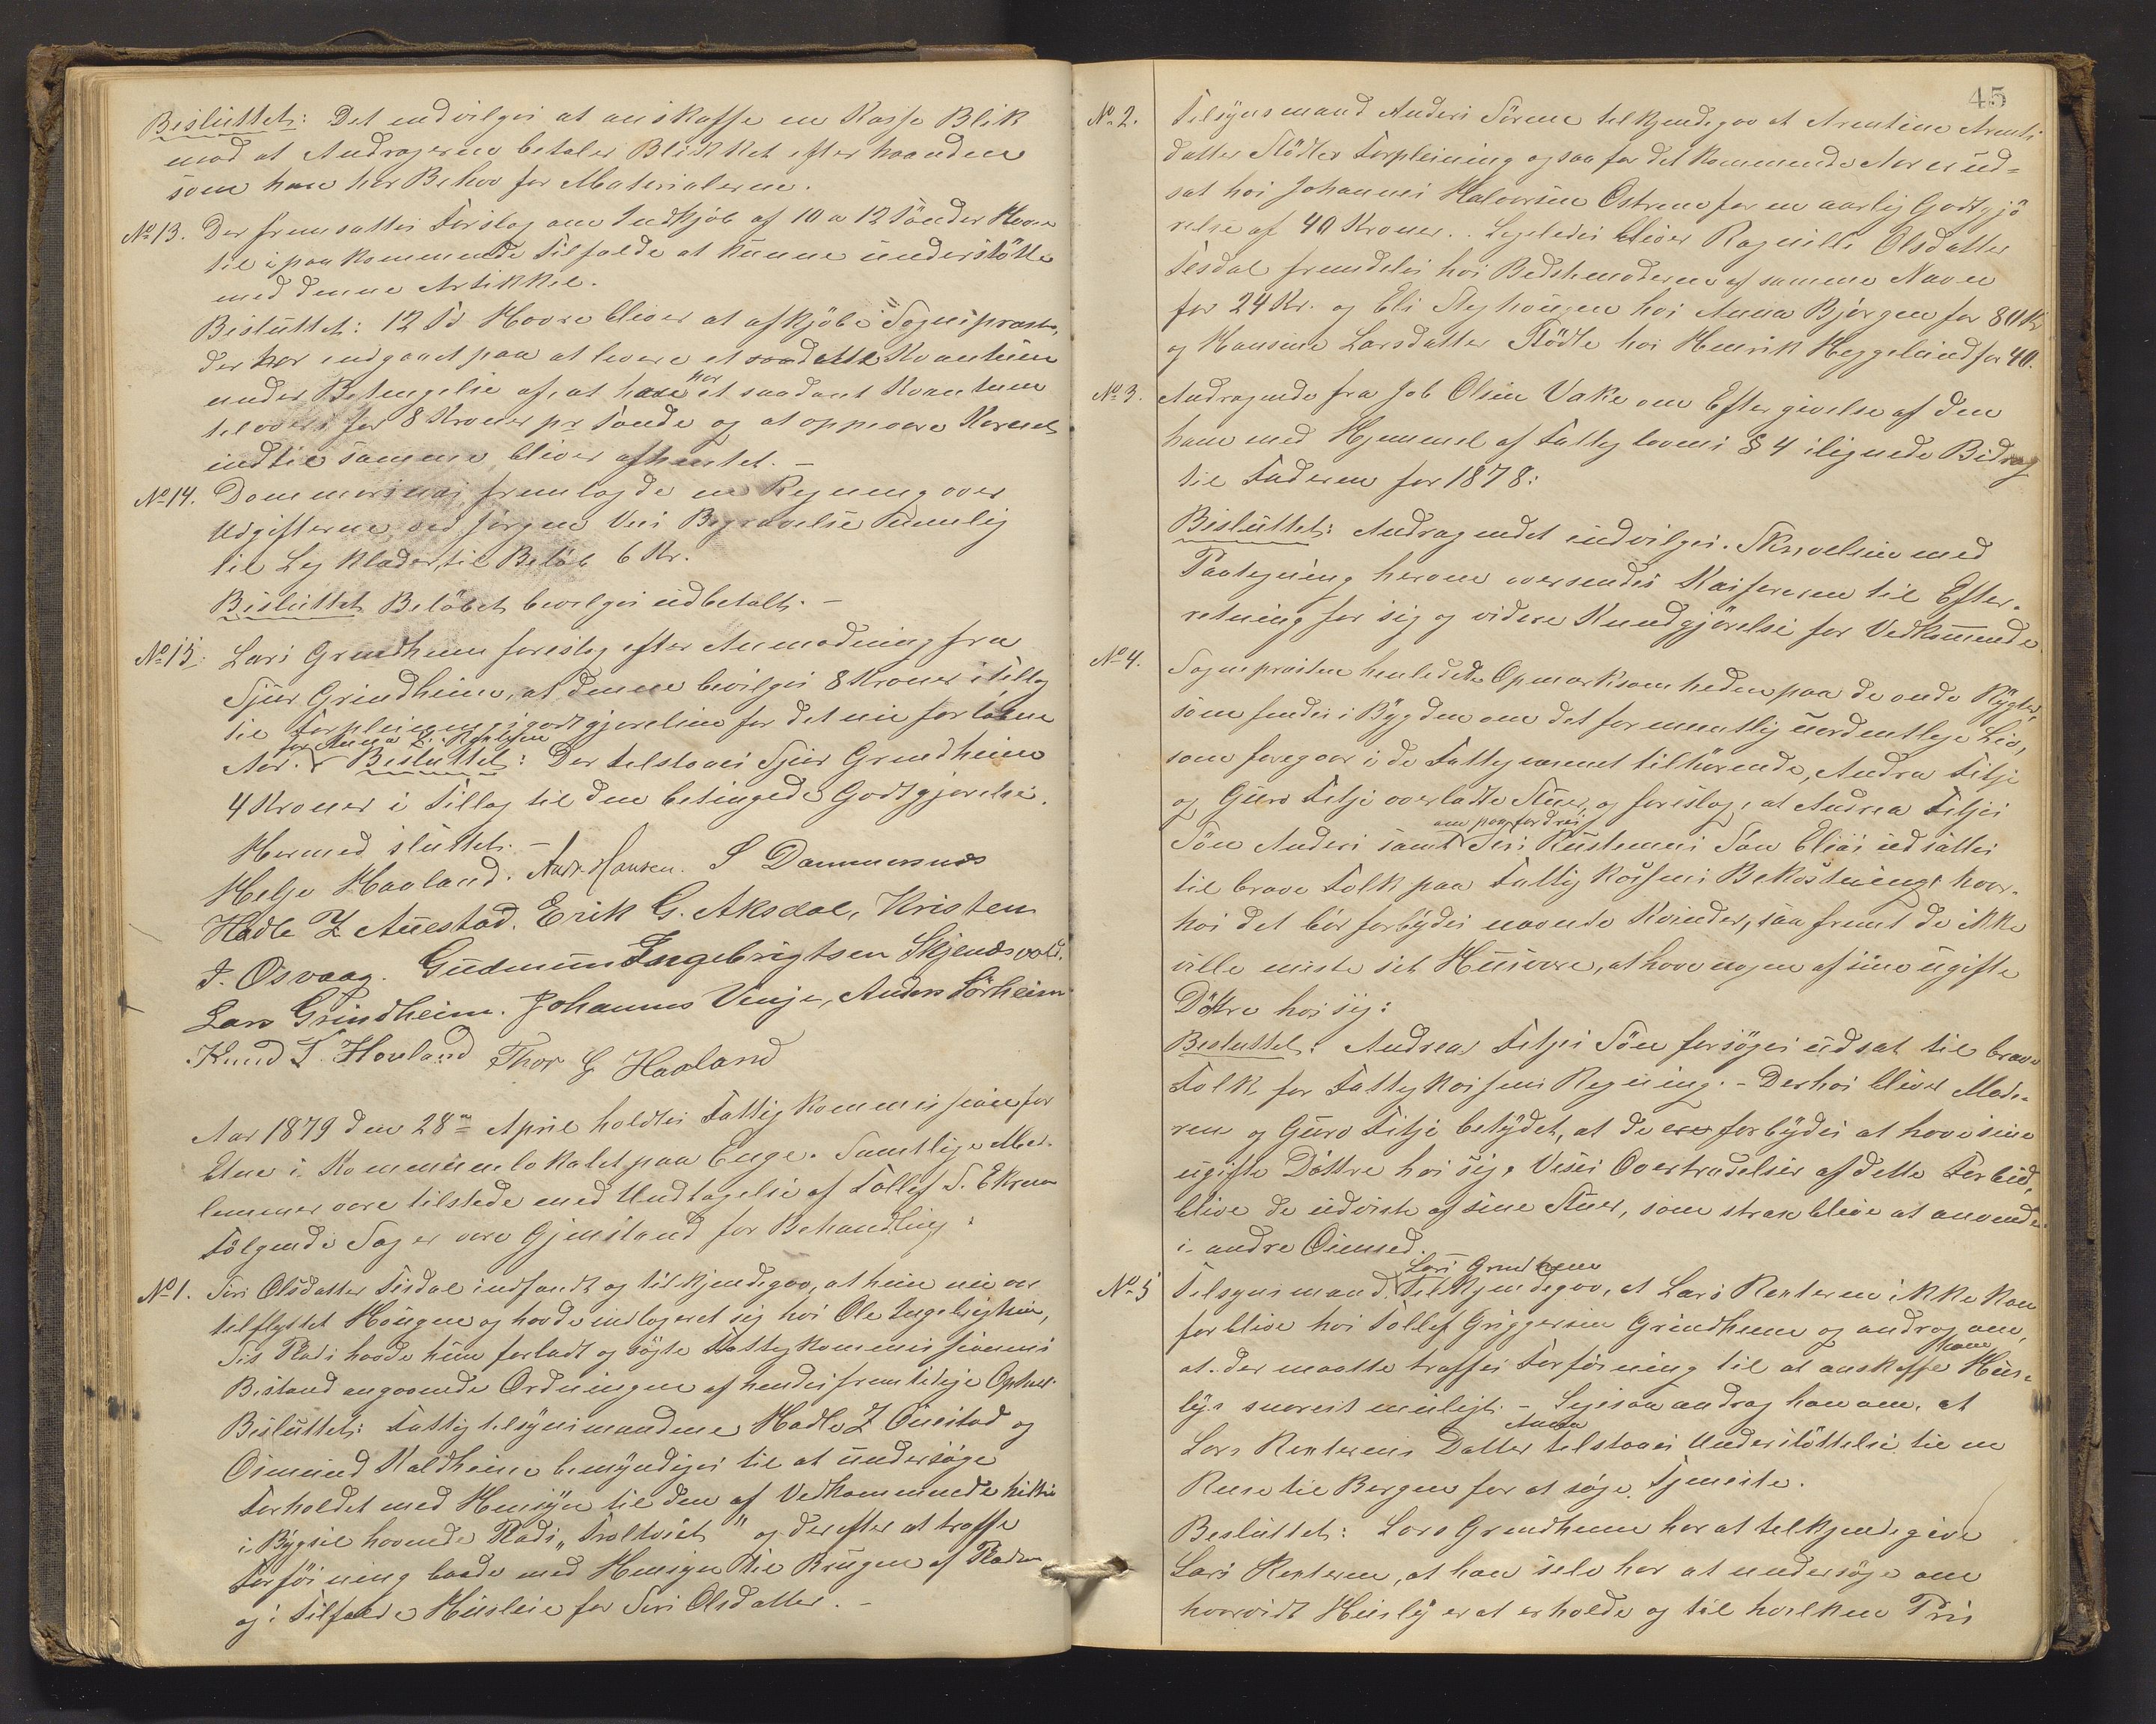 Besluttet: Det indvilges at anskaffe en Kasse Blik
mod at Andrageren betaler Blikket efterhaanden
som han har Behov for Materialerne.
No 13. Der fremsattes Forslag om Indkjøb af 10 a 12 Tønder Havre
til i paakommende Tilfælde at kunne understøtte
med denne Artikkel.
Besluttet: 12 Td Havre bliver at afkjøbe Sognepræsten,
der har indgaaet paa at levere et Kvantum
under Betingelse af, at han har et saadant Kvantum
tilovers for 8 Kroner pr Tønde og at opbevare Kornet
indtil samme bliver afhentet. –
No 14. Dommersnæs fremlagde en Regning over
Udgifterne ved Jørgen Begravelse nemlig
til Ligklæder, til Beløb 6 Kr.
Besluttet Beløbet bevilges udbetalt. –
No 15. Lars Grindheim foreslog efter Anmodning fra
Sjur Grindheim, at denne bevilges 8 Kroner i Tillæg
til Forpleiningsgodtgjørelsen for det nu forløbne
for Anna L.
Aar. Besluttet: Der tilstaaes Sjur Grindheim
4 Kroner i Tillæg til den betingede Godtgjørelse.
Hermed sluttet. –
Helje Haaland. Andr. Hansen. S Dammersnæs
Hadle Z Auestad. Erik G. Aksdal, Kristen
T. Osvaag. Gudmun Ingebrigtsen Skjendsvold.
Lars Grindheim. Johannes Vinje, Anders Sørheim
Knud T. Hovland Thor G Haaland
Aar 1879 den 28de April holdtes Fattigkommission for
Etne i Kommunelokalet paa Enge. Samtlige Med-
lemmer vare tilstede med Undtagelse af Tollef S. Ekrene
Følgende Sager vare Gjenstand for Behandling:
No 1. Siri Olsdatter Tesdal indfandt og tilkjendegav, at hun nu var
tilflyttet Haugen og havde indlogeret sig hos Ole Ingebrigtsen,
Sit Plads havde hun forladt og søgte Fattigkommissionens
Bistand angaaende Ordningen af hendes fremtidige Ophold.
Besluttet: Fattigtilsynsmændene Hadle Z Øuestad og
Osmund Kaldheim bemyndiges til at undersøge
Forholdet med Hensyn til den af Vedkommende hidtil
i Bygsel havende Plads „Traltveit" og derefter at træffe
Forføining baade med Hensyn til Brugen af Pladsen
og i Tilfælde Husleie for Siri Olsdatter. –
45
No 2. Tilsynsmand Anders Sørheim tilkjendegav at Arentine Arents-
datter Stødles Forpleining ogsaa for det kommende Aar er ud-
sat hos Johannes Halvorsen Østrem for en aarlig Godtgjø
relse af 40 Kroner. Ligeledes bliver Ragnilde Olsdatter
Tesdal fremdeles hos Bedstemoderen af samme Navn
for 24 Kr. og Eli Steghaugen hos Anna Bjørgen for 80 Kr
og Hansine Larsdatter Stødle hos Henrik Heggelund for 40.
No 3. Andragende fra Job Olsen Vake om Eftergivelse af den
ham med Hjemmel af Fattiglovens § 4 ilignede Bidrag
til Faderen for 1878:
Besluttet: Andragendet indvilges. Skrivelsen med
Paategning herom oversendes Kassereren til Efter-
retning for sig og videre Kundgjørelse for Vedkommende
No 4. Sognepræsten henledede Opmærksomheden paa de onde Rygter,
som findes i Bygden om det formentlig uordentlige Liv,
som foregaar i de Fattigvæsenet tilhørende, Andrea Fitje
og Guro Fitje overladte Stuer, og foreslog, at Andrea Fitjes
om paafordres
Søn Anders samt Siri Rustemens Søn blives udsatte
til brave Folk paa Fattigkassens Bekostning, hvor-
hos det bør forbydes nævnte Kvinder, saafremt de ikke
ville miste sit Husvære, at have nogen af sine ugifte
Døttre hos sig:
Besluttet: Andreas Fitjes Søn forsøges udsat til brave
Folk for Fattigkassens Regning. – Derhos bliver Mode-
ren og Guro Fitje betydet, at de forbydes at have sine
ugifte Døttre hos sig. Vises Overtrædelser af dette Forbud,
blive de udviste af sine Stuer, som strax blive at anvende
i andre Øiemed.
Lars Grindheim
No 5 Tilsynsmand Tilkjendegav, at Lars Rexteren ikke kan
forblive hos Tollef Griggersen Grindheim og androg om,
at der maatte træffes Forføining til at anskaffe ham Hus-
ly snarest muligt. – Ligesaa androg han om, at
Anna
Lars Rexterens Datter tilstaaes Understøttelse til en
Reise til Bergen for at søge Tjeneste.
Besluttet: Lars Grindheim har at tilkjendegive
Lars Rexteren, at han selv har at undersøge om
hvorvidt Husly er at erholde og til hvilken Pris